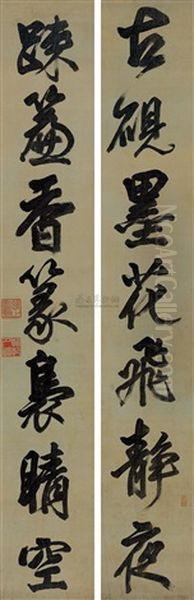 古硯墨花飛静夜
疎簾香篆裊晴空